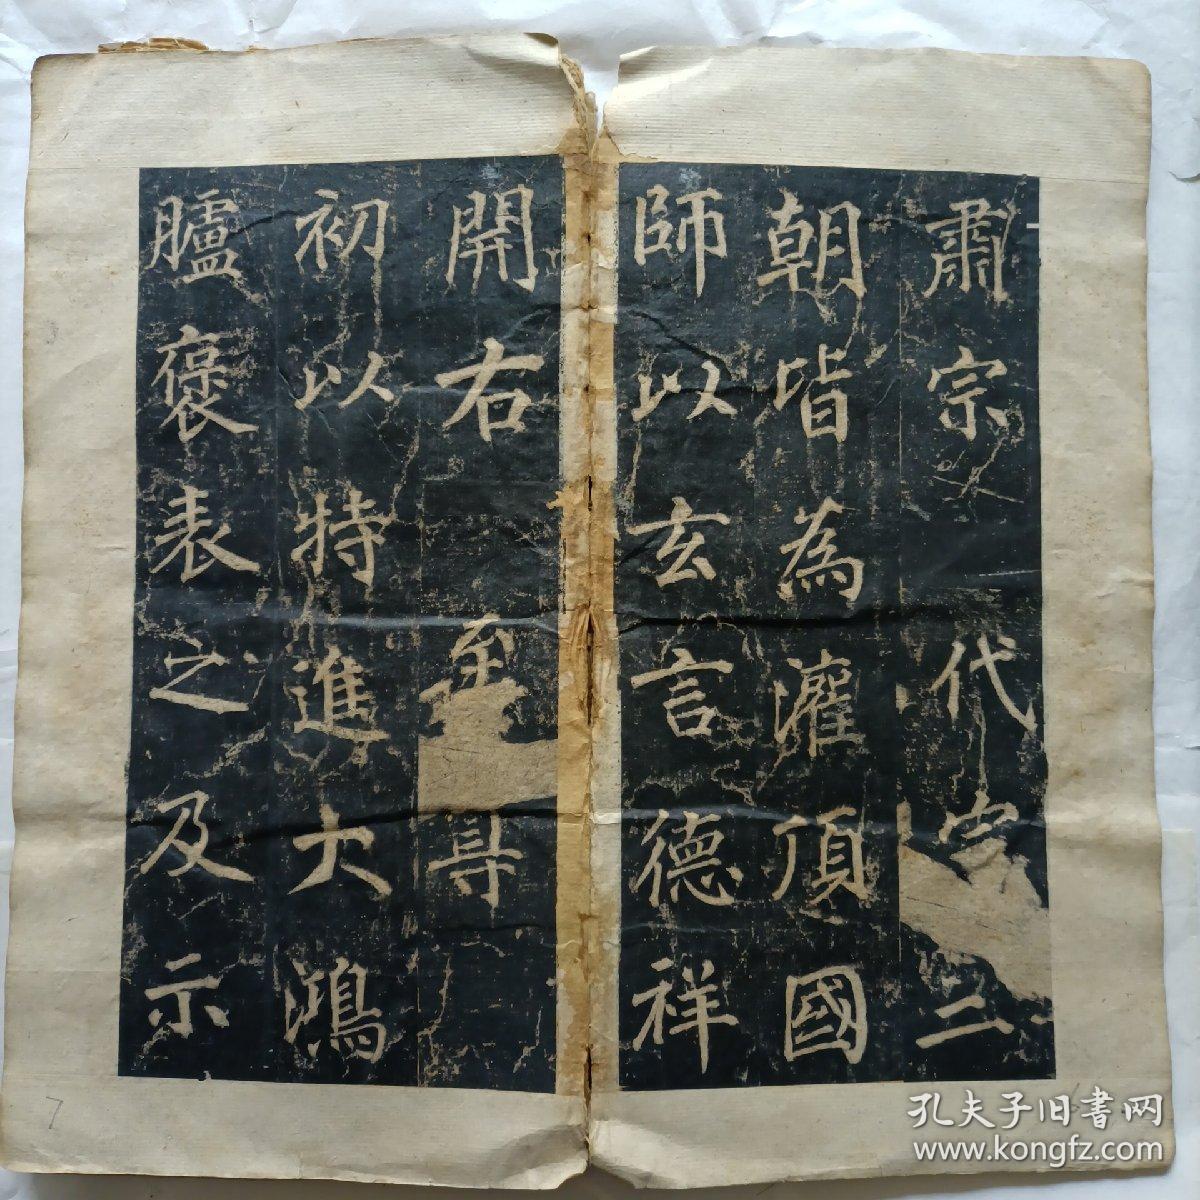 肅宗代宗二
朝皆為灌頂國
師以玄言德祥
開右至尋
初以特進大鴻
臚褒表之及示
7
孔夫子旧書网
www.kongfz.com